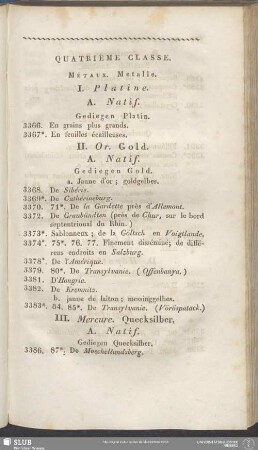 QUATRIÈME CLASSE.
Métaux. Metalle.
I. Platine.
A. Natif.
Gediegen Platin.
3366. En grains plus grands.
3367*. En feuilles écailleuses.
II. Or. Gold.
A. Natif.
Gediegen Gold.
a. Jaune d'or; goldgelber.
3368. De Sibérie.
3369*. De Cathérineburg.
3370. 71*. De la Gardette près d'Allemont.
3372. De Graubündten (près de Chur, sur le bord
septentrional du Rhin.)
3373*. Sablonneux; de la Göltsch en Voigtlande.
3374*. 75*. 76. 77. Finement disséminé; de diffé-
rens endroits en Salzburg.
3378*. De l'Amérique.
3379. 80*. De Transylvanie. (Offenbanya.)
3381. D'Hongrie.
3382. De Kremnitz.
b. jaune de laiton; messinggelbes.
3383*. 84. 85*. De Transylvanie. (Vöröspatack.)
III. Mercure. Quecksilber.
A. Natif.
Gediegen Quecksilber.
3386. 87*. De Moschellandsberg.
SLUB